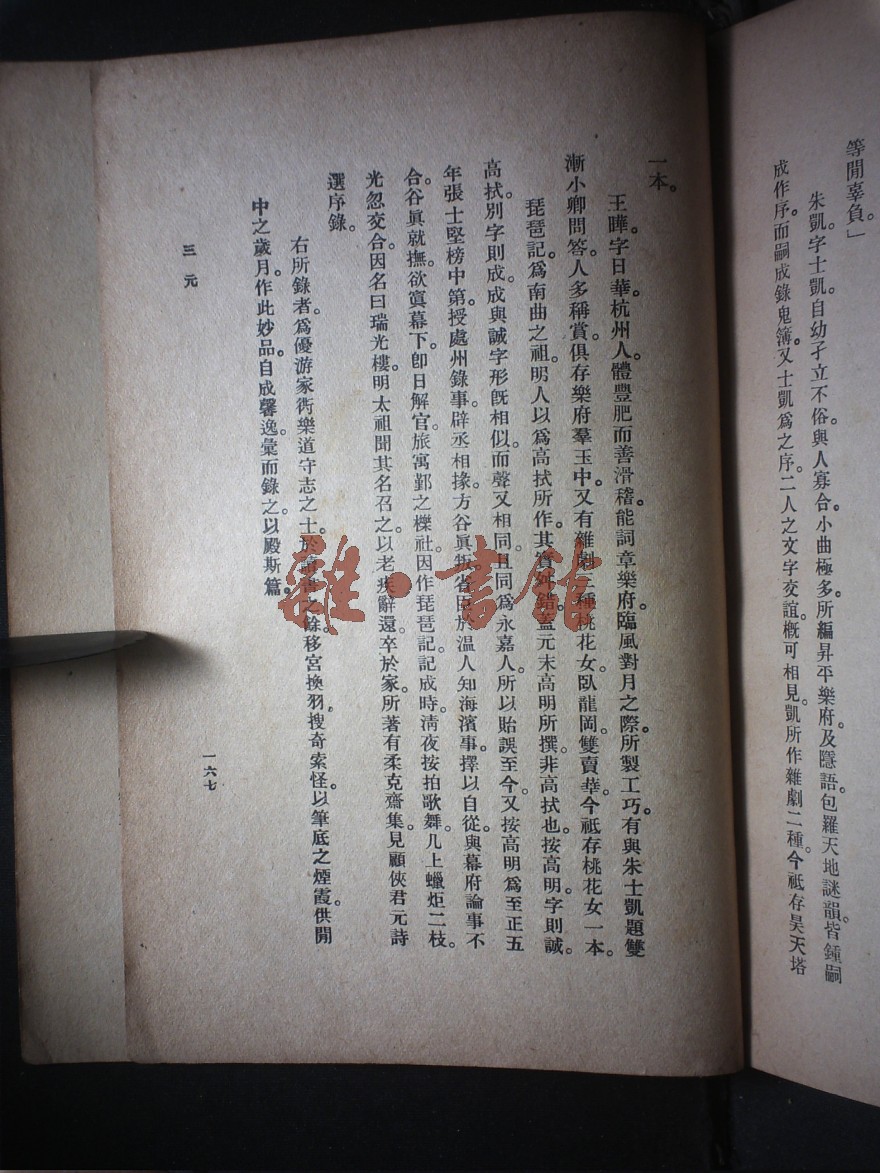 等閒辜負」
朱凱。字士凱。自幼孑立不俗。與人寡合。小曲極多。所編昇平樂府。及隱語。包羅天地謎韻。皆鍾嗣
成作序。而嗣成錄鬼簿。又士凱爲之序。二人之文字交誼。概可相見。凱所作雜劇二種。今祇存昊天塔
一本。
王曄。字日華。杭州人。體豐肥而善滑稽。能詞章樂府。臨風對月之際。所製工巧。有與朱士凱題雙
漸小卿問答。人多稱賞。俱存樂府羣玉中。又有雜劇三種。桃花女臥龍岡雙賣華。今祇存桃花女一本。
琵琶記。爲南曲之祖。明人以爲高拭所作。其實舛錯。蓋元末高明所撰。非高拭也。按高明。字則誠。
高拭別字則成。成與誠字形旣相似。而聲又相同。且同爲永嘉人。所以貽誤至今。又按高明爲至正五
年張士堅榜中第。授處州錄事。辟丞相掾。方谷眞叛。省臣於温人知海濱事。擇以自從。與幕府論事不
合。谷眞就撫。欲寘幕下。卽日解官。旅寓鄞之櫟社。因作琵琶記。記成時。淸夜按拍歌舞。几上蠟炬二枝。
光忽交合。因名曰瑞光樓。明太祖聞其名召之。以老疾辭還。卒於家。所著有柔克齋集。見顧俠君元詩
選序錄。
右所錄者。爲優游家衖樂道守志之士。於讀書之餘。移宮換羽。搜奇索怪。以筆底之煙霞。供閒
中之歲月。作此妙品。自成馨逸。彙而錄之。以殿斯篇。
三 元
一六七
雜·書館